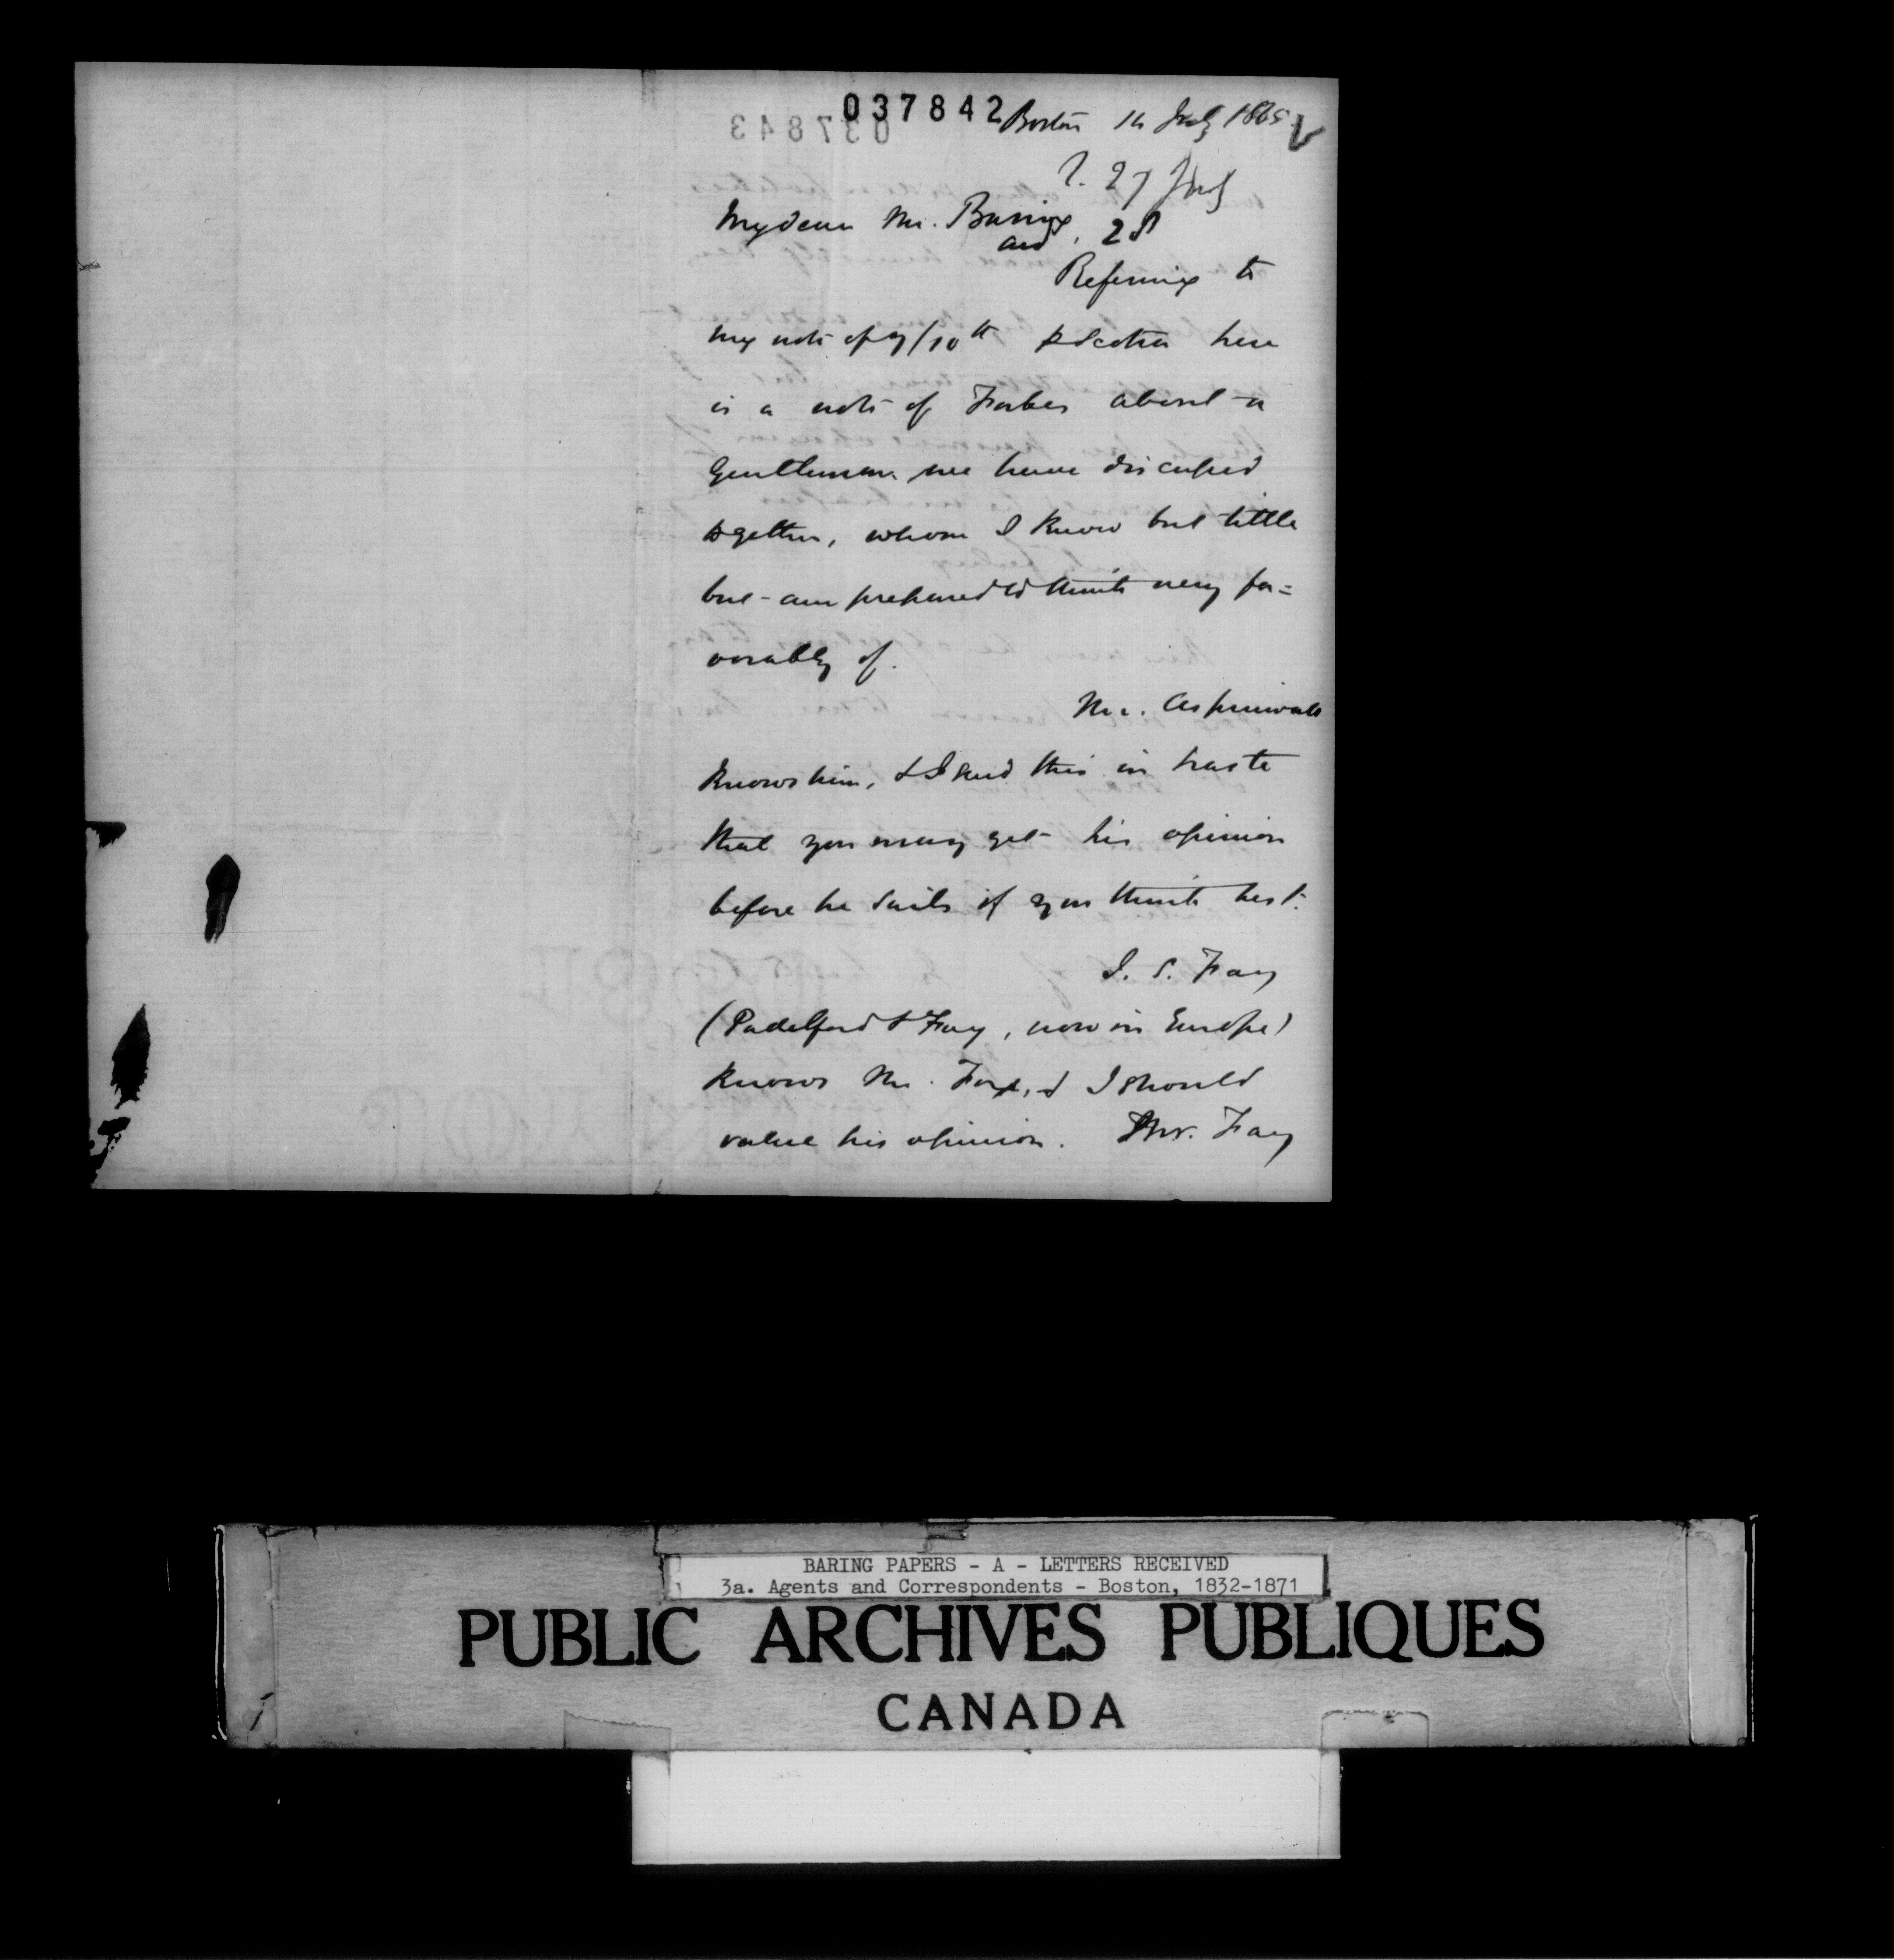 037842
037843
Boston 14 July 1865
R. 27 July
My dear Mr. Baring
and . 28
Referring to
my note of 7/10th p Scotia here
is a note of Forbes about a
Gentleman we have discussed
together, whom I know but little
but am prepared to think very fa=
vorably of.
Mr. Aspinwall
knows him, & I send this in haste
that you may get his opinion
before he sails if you think best.
I. S. Fay
(Padelford & Fay, now in Europe)
knows Mr. Fox, & I should
value his opinion. Mr. Fay
BARING PAPERS - A - LETTERS RECEIVED
3a. Agents and Correspondents - Boston, 1832-1871
PUBLIC ARCHIVES PUBLIQUES
CANADA